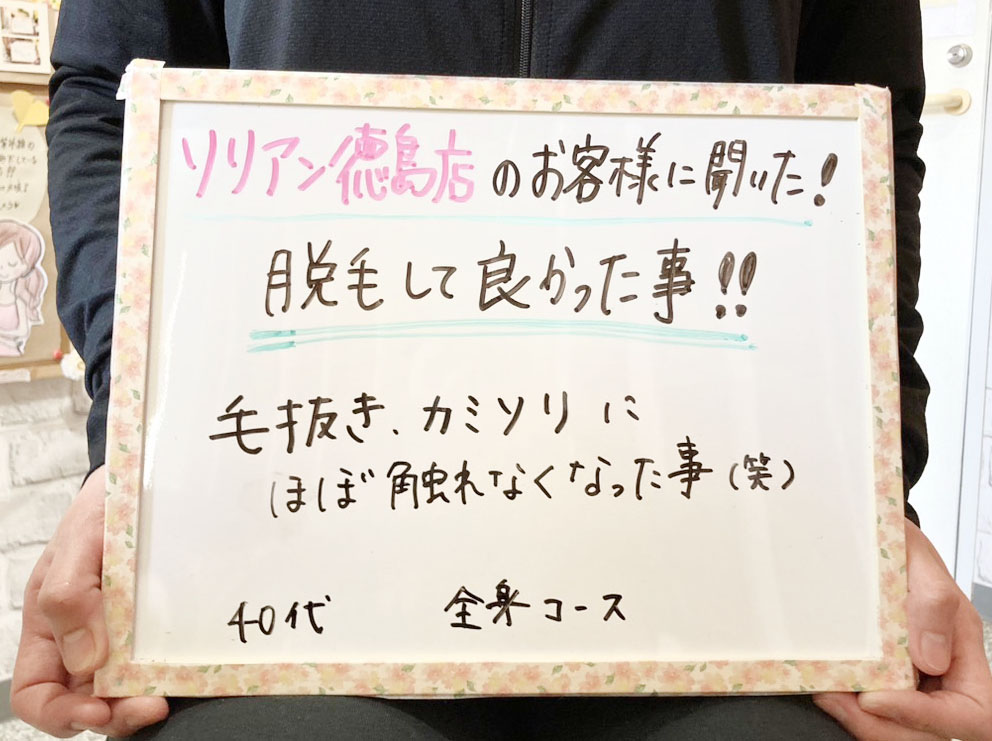 ソリアン徳島店のお客様に聞いた!
脱毛して良かった事!!
毛抜き、カミソリに
ほぼ触れなくなった事(笑)
40代 全身コース